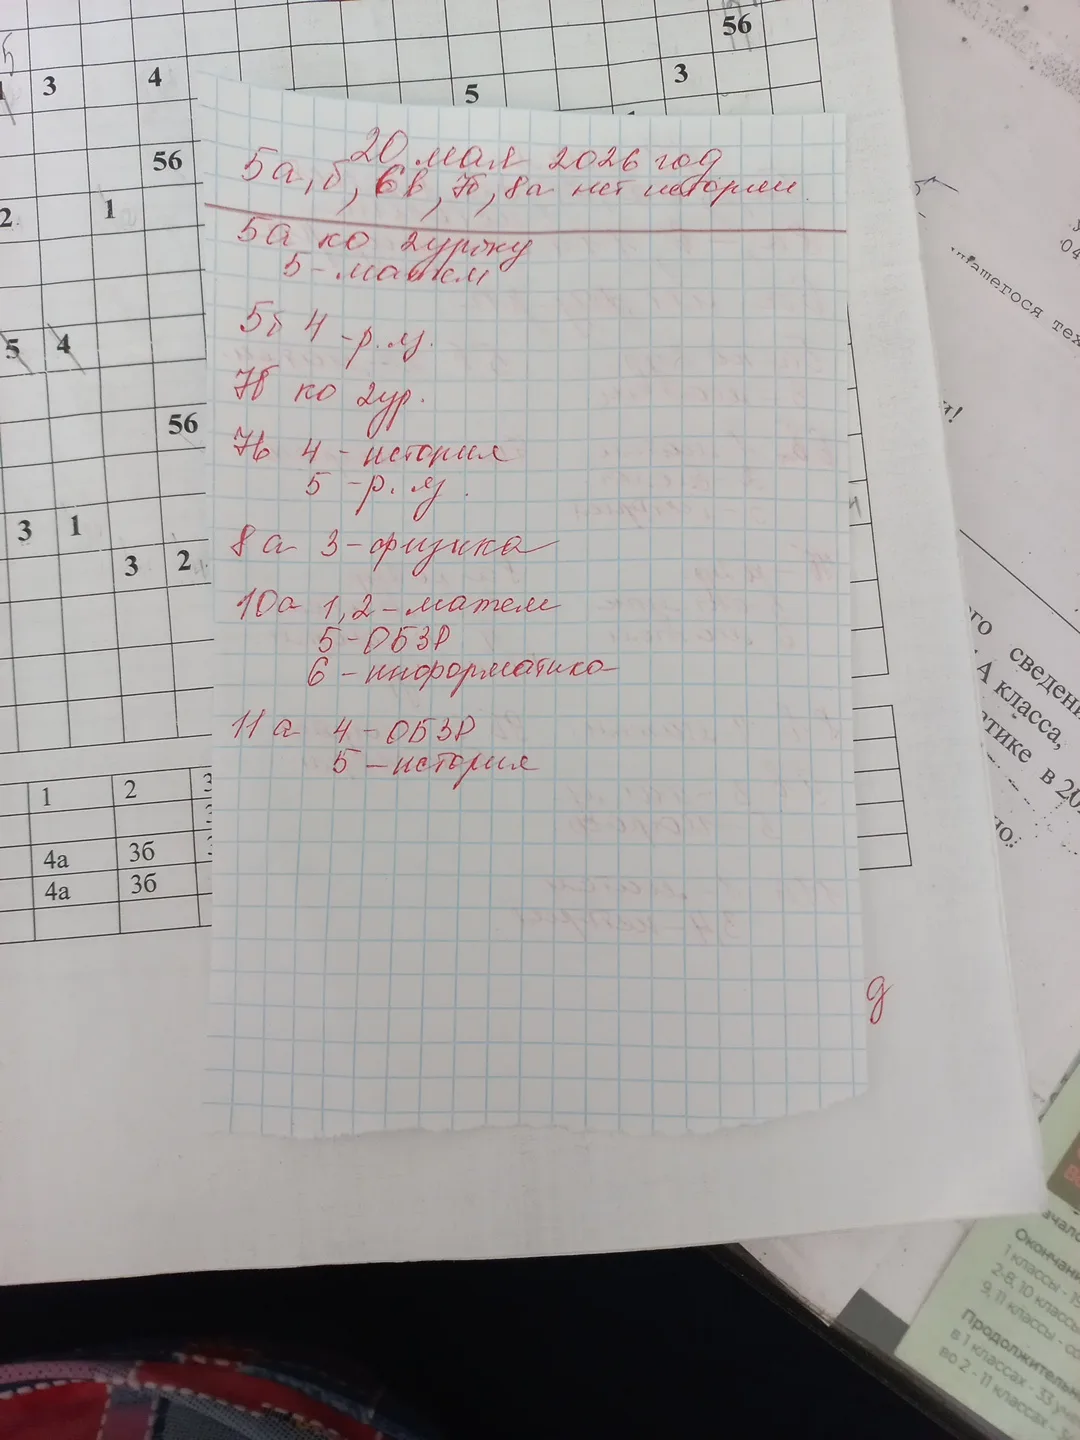 56
3 4 5 3
56
2 1
5 4
56
3 1
3 2
1 2 3
4а 3б
4а 3б
20 мая 2026 год
5а, б, 6в, 7б, 8а нет истории
5а ко 2 уроку
5 - матем
5б 4 - р. яз.
7б ко 2 ур.
7в 4 - история
5 - р. яз.
8а 3 - физика
10а 1, 2 - матем
5 - ОБЗР
6 - информатика
11а 4 - ОБЗР
5 - история
04
ащегося тех
и!
ого сведени
А класса,
тике в 20
но:
Окончани
1 классы - 
2-8, 10 классы
9, 11 классы - 
Продолжительн
в 1 классах - 33 уче
во 2 - 11 классах -